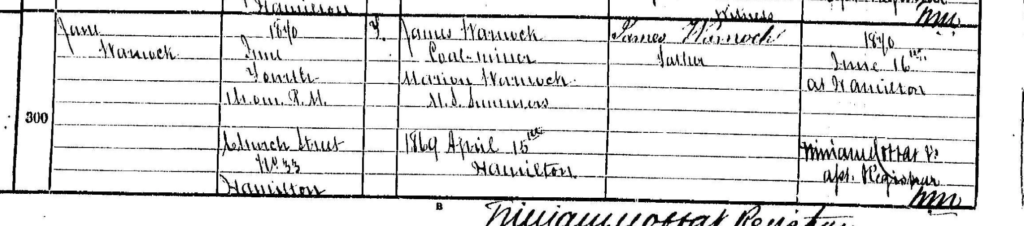 Hamilton
Witness
Jane
Warnock
300
1870
June
Fourth
1h. 0m. P.M.
Church Street
No. 33
Hamilton
F.
James Warnock
Coal-miner
Marion Warnock
M.S. Summers
1869 April 15th
Hamilton
James Warnock
Father
1870
June 16th
at Hamilton
Ninian Moffat
asst. Registrar
NM
B
Ninian Moffat Registrar